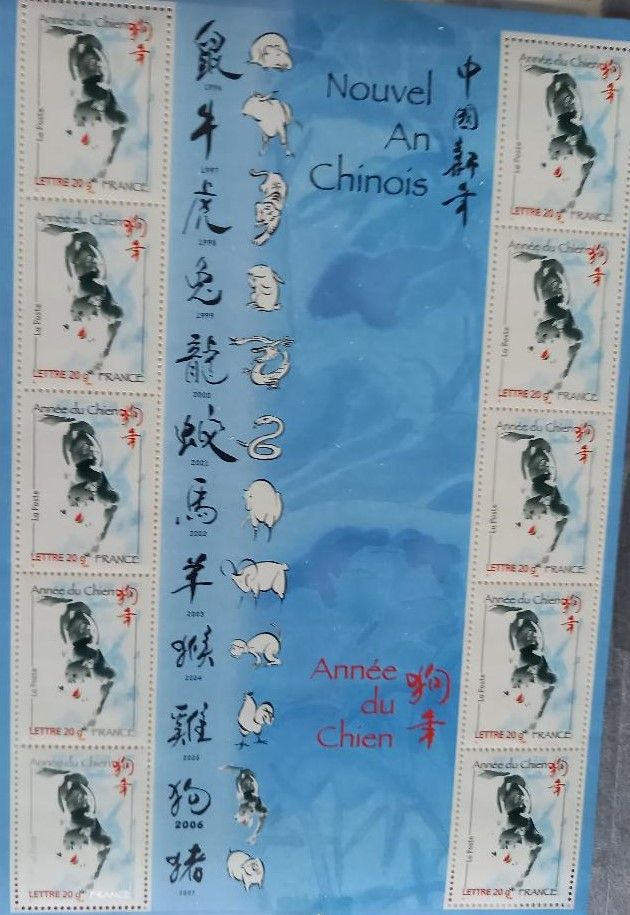 Année du Chien
狗年
La Poste
LETTRE 20 g FRANCE
Année du Chien
狗年
La Poste
LETTRE 20 g FRANCE
Année du Chien
狗年
La Poste
LETTRE 20 g FRANCE
Année du Chien
狗年
La Poste
LETTRE 20 g FRANCE
Année du Chien
狗年
LETTRE 20 g FRANCE
鼠
1996
牛
1997
虎
1998
兔
1999
龍
2000
蛇
2001
馬
2002
羊
2003
猴
2004
雞
2005
狗
2006
猪
2007
Nouvel
An
Chinois
中國新年
Année
du
Chien
狗年
Année du Chien
狗年
La Poste
LETTRE 20 g FRANCE
Année du Chien
狗年
La Poste
LETTRE 20 g FRANCE
Année du Chien
狗年
La Poste
LETTRE 20 g FRANCE
Année du Chien
狗年
La Poste
LETTRE 20 g FRANCE
Année du Chien
狗年
La Poste
LETTRE 20 g FRANCE